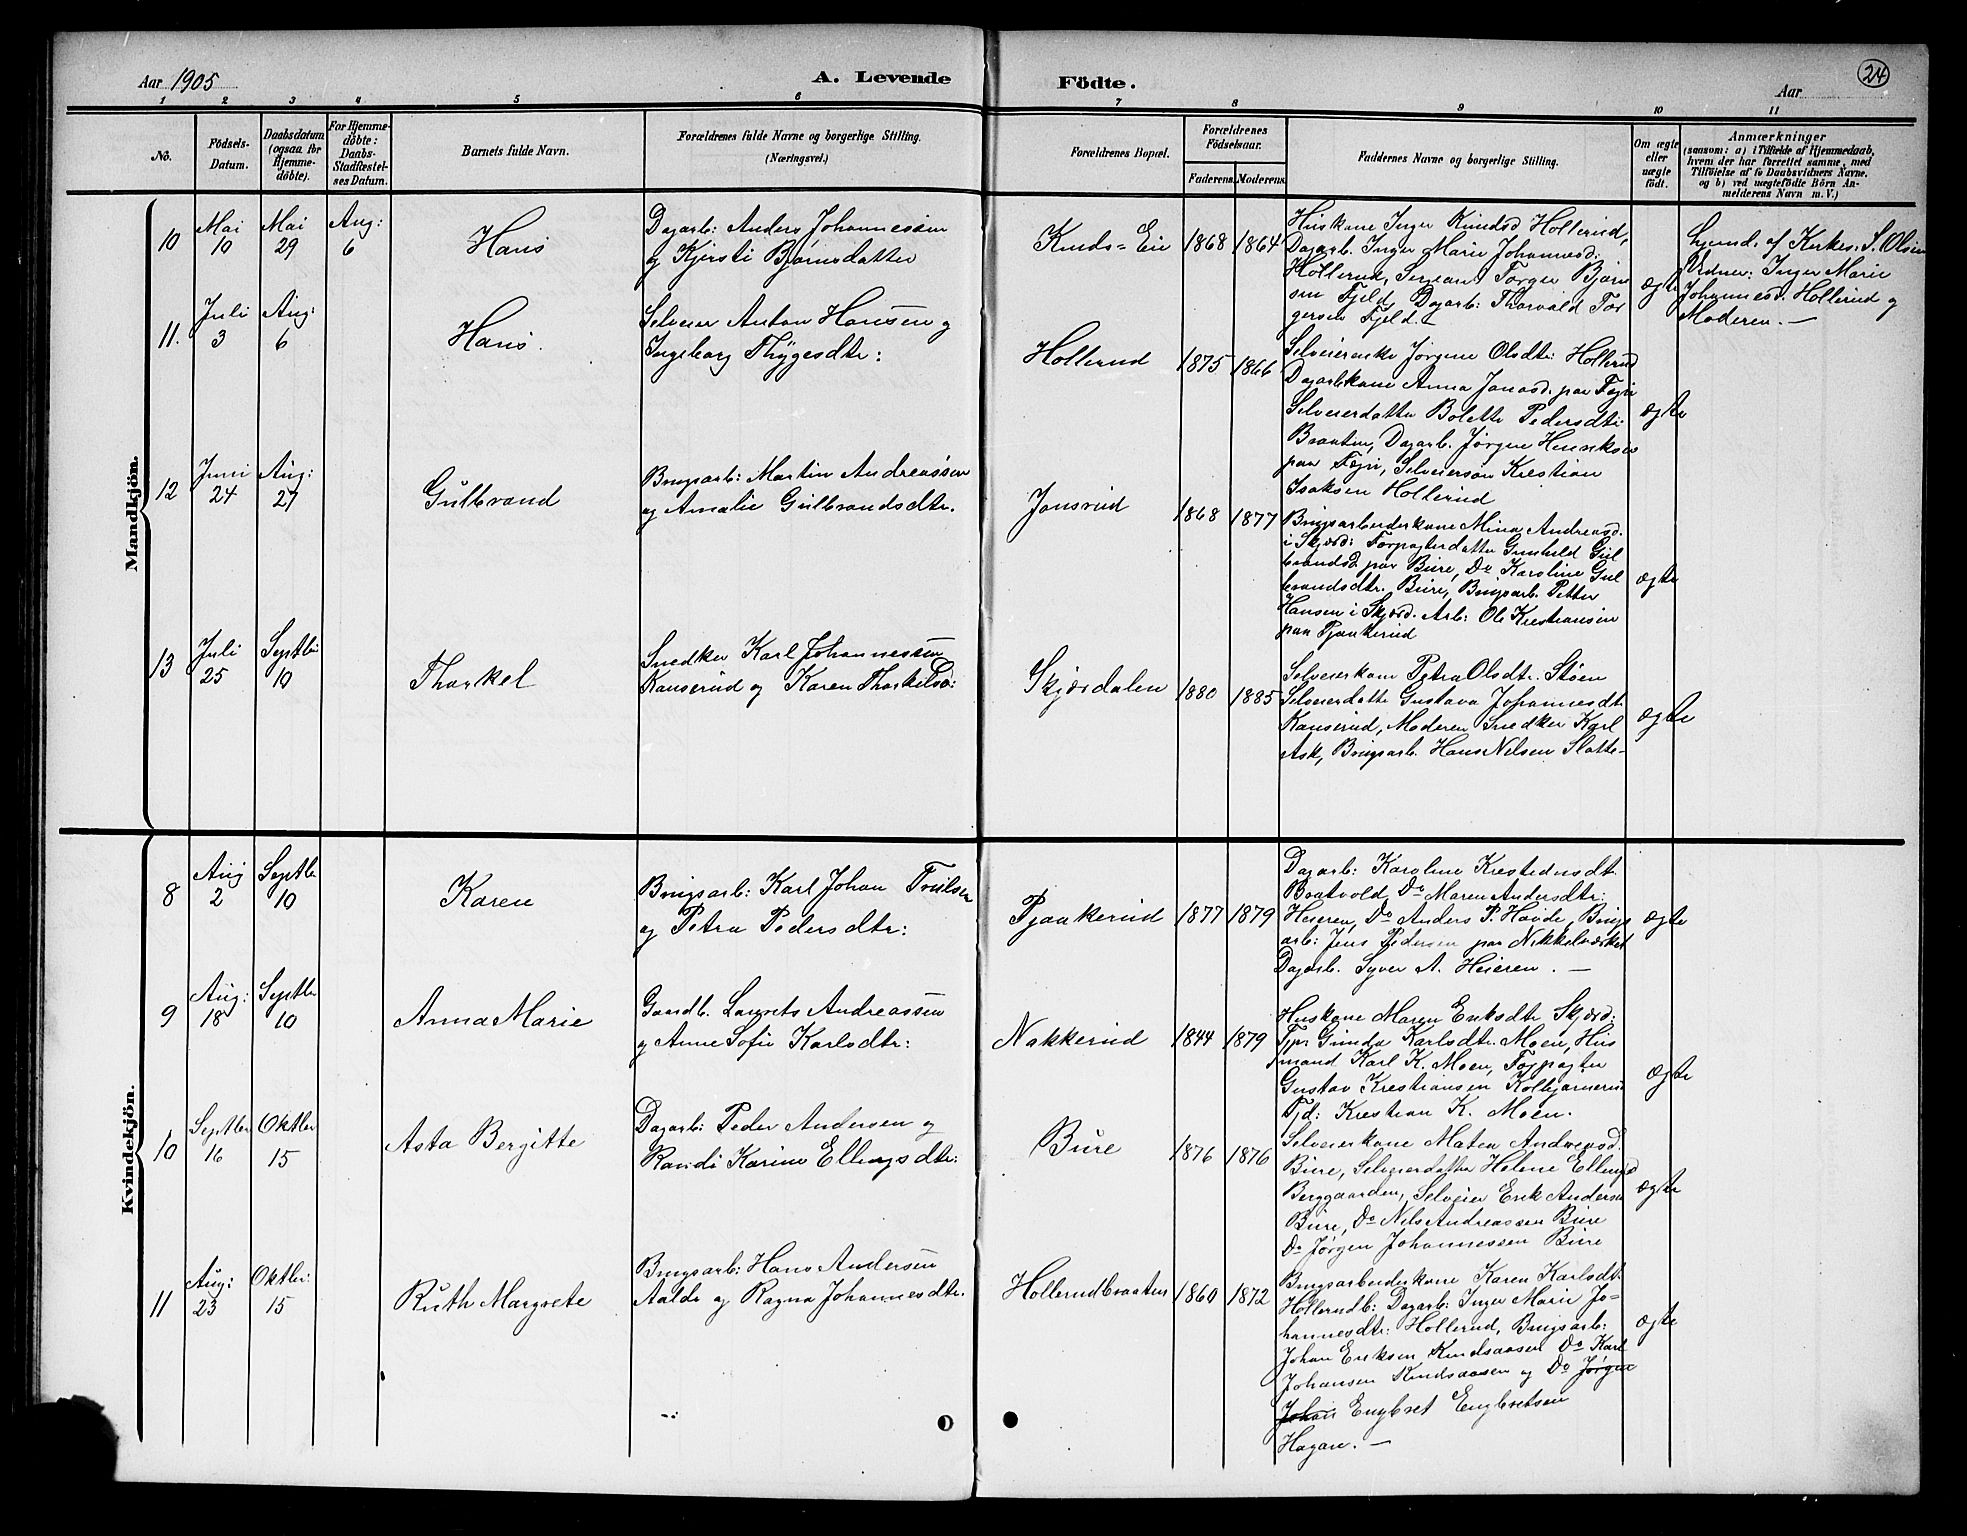 Aar 1905
A. Levende
Födte.
Aar
24
1 2 3 4 5 6 7 8 9 10 11
No.
Födsels-
Datum.
Daabsdatum
(ogsaa for
Hjemme-
döbte).
For Hjemme-
döbte:
Daabs-
Stadfæstel-
ses Datum.
Barnets fulde Navn.
Forældrenes fulde Navne og borgerlige Stilling.
(Næringsvei.)
Forældrenes Bopæl.
Forældrenes
Födselsaar.
Faderens. Moderens.
Faddernes Navne og borgerlige Stilling.
Om ægte
eller
uægte
födt.
Anmærkninger
(saasom: a) i Tilfælde af Hjemmedaab,
hvem der har forrettet samme, med
Tilföielse af to Daabsvidners Navne.
og b) ved uægtefödte Börn An-
melderens Navn m. V.)
Mandkjön.
10
Mai
10
Mai
29
Aug:
6
Hans
Dagarb: Anders Johannessen
og Kjersti Bjørnsdatter
Knuds=Eie
1868 1864
Huskone Inger Knudsd Hollerud,
Dagarb. Inger Marie Johannesd:
Hollerud, Sergeant Torger Bjørn
sen Fjeld, Dagarb: Thorvald Tor
gersen Fjeld. —
ægte
hjemd. af Kirkes. S. Olsen
Vidner: Inger Marie
Johannesd. Hollerud og
Moderen. —
11.
Juli
3
Aug:
6
Hans.
Selveier Anton Hansen og
Ingeborg Thygesdtr:
Hollerud
1875 1866
Selveierenke Jørgine Olsdtr: Hollerud
Dagarbkone Anna Jonasd. paa Fegri
Selveierdatter Bolette Pedersdtr:
Braaten, Dagarb. Jørgen Henriksen
paa Fegri, Selveiersøn Kristian
Isaksen Hollerud
ægte
12
Juni
24
Aug:
27
Gulbrand
Brugsarb: Martin Andreassen
og Amalie Gulbrandsdtr.
Jonsrud
1868 1877
Brugsarbeiderkone Mina Andreasd.
i Skjærd: Forpagterdatter Gunhild Gul
brandsd paa Bure, Do Karoline Gul
brandsdtr. Bure, Brugsarb. Petter
Hansen i Skjærd. Arb: Ole Kristiansen
paa Pjaakerud
ægte
13
Juli
25
Septbr:
10
Thorkel
Snedker Karl Johannessen
Kanserud og Karen Thorkilsd:
Skjærdalen
1880 1885
Selveierkone Petra Olsdtr. Støen
Selveierdatter Gustava Johannesdt.
Kanserud, Moderen Snedker Karl
Ask, Brugsarb. Hans Nilsen Slotte-
ægte
Kvindekjön.
8
Aug
2
Septbr
10
Karen
Brugsarb: Karl Johan Trulsen
og Petra Pedersdtr:
Pjaakerud
1877 1879
Dagarb: Karoline Kristensdt.
Boatvold, Do Maren Andersdtr:
Heieren, Do Anders P. Høvde, Brugs
arb: Jens Pedersen paa Nikkelværket
Dagarb. Syver A. Heieren. —
ægte
9
Aug:
18
Septbr
10
Anna Marie
Gaardb. Laurits Andreassen
og Anne Sofie Karlsdtr:
Nakkerud
1844 1879
Huskone Maren Eriksdtr Skjærd:
Tjp: Gunda Karlsdtr. Moen, Hus
mand Karl K. Moen, Forpagter
Gustav Kristiansen Kolbjørnerud
Tjd: Kristian K. Moen.
ægte
10
Septbr
16
Oktbr
15
Asta Bergitte
Dagarb: Peder Andersen og
Randi Karine Ellingsdtr:
Bure
1876 1876
Selveierkone Matea Andreasd.
Bure, Selveierdatter Helene Ellingsd
Berggaarden, Selveier Erik Andersen
Bure, Do Nils Andreassen Bure
Do Jørgen Johannessen Bure
ægte
11
Aug:
23
Oktbr:
15
Ruth Margrete
Brugsarb: Hans Andersen
Aalde og Ragna Johannesdtr.
Hollerudbraaten
1860 1872
Brugsarbeiderkone Karen Karlsdt.
Hollerudb: Dagarb: Inger Marie Jo-
hannesdtr: Hollerud, Brugsarb:
Johan Eriksen Knudsaasen Do Karl
Johansen Knudsaasen og Do Jørgen
Johan Engbret Engbretsen
Hagan. —
ægte